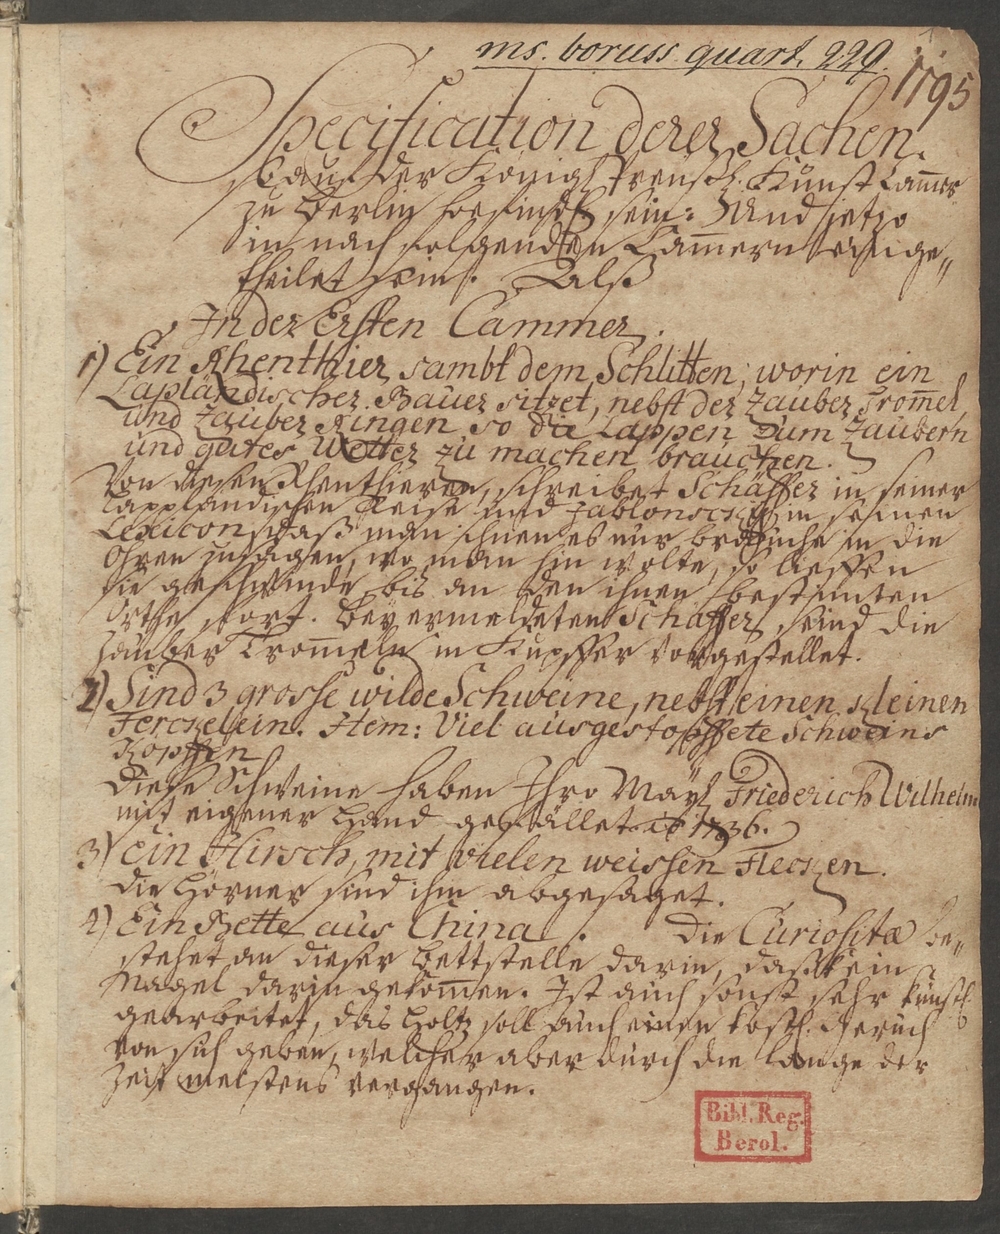 ms. boruss. quart. 229.
1
1795
Specification derer Sachen.
so auf der Königl. Preußl. Kunst Cam̄er
zu Berlin befindl sein: Und jetzo
in nach folgenden Cam̄ern einge„
theilet sein. Alß
In der Ersten Cammer.
1) Ein Rhenthier, sambt dem Schlitten, worin ein
Lapländischer Bauer sitzet, nebst der Zauber Trom̄el,
und Zauber Ringen so die Lappen zum Zaubern
und gutes Wetter zu machen brauchen.
Von diesen Rhenthieren, schreibet Schäffer in seiner
Lappländischen Reise und Jablonocsky in seinen
Lexicon, daß man ihnen es nur brauche in die
Ohren zu sagen, wo man hin wolte, so lieffen
sie geschwinde bis an den ihnen bestim̄ten
Orthe fort. Bey ermeldeten Schäffer, seind die
Zauber Trom̄eln in Kupffer vorgestellet.
2) Sind 3 grosse wilde Schweine, nebst einen kleinen
Ferckelein. Item: Viel ausgestopffete Schweins
Kopffen
Diese Schweine haben Ihro Mayt Friederich Wilhelm
mit eigener Hand gefället. ao 1736.
3) ein Hirsch, mit vielen weissen Flecken.
die Hörner sind ihm abgesaget.
4) Ein Bette aus China. Die Curiositæ be„
stehet an dieser Bettstelle darin, daß kein
Nagel darin gekom̄en. Ist auch sonst sehr künstl.
gearbeitet, das Holtz soll auch einen köstl. Geruch
von sich geben, welcher aber durch die Länge der
Zeit meistens vergangen.
Bibl. Reg.
Berol.